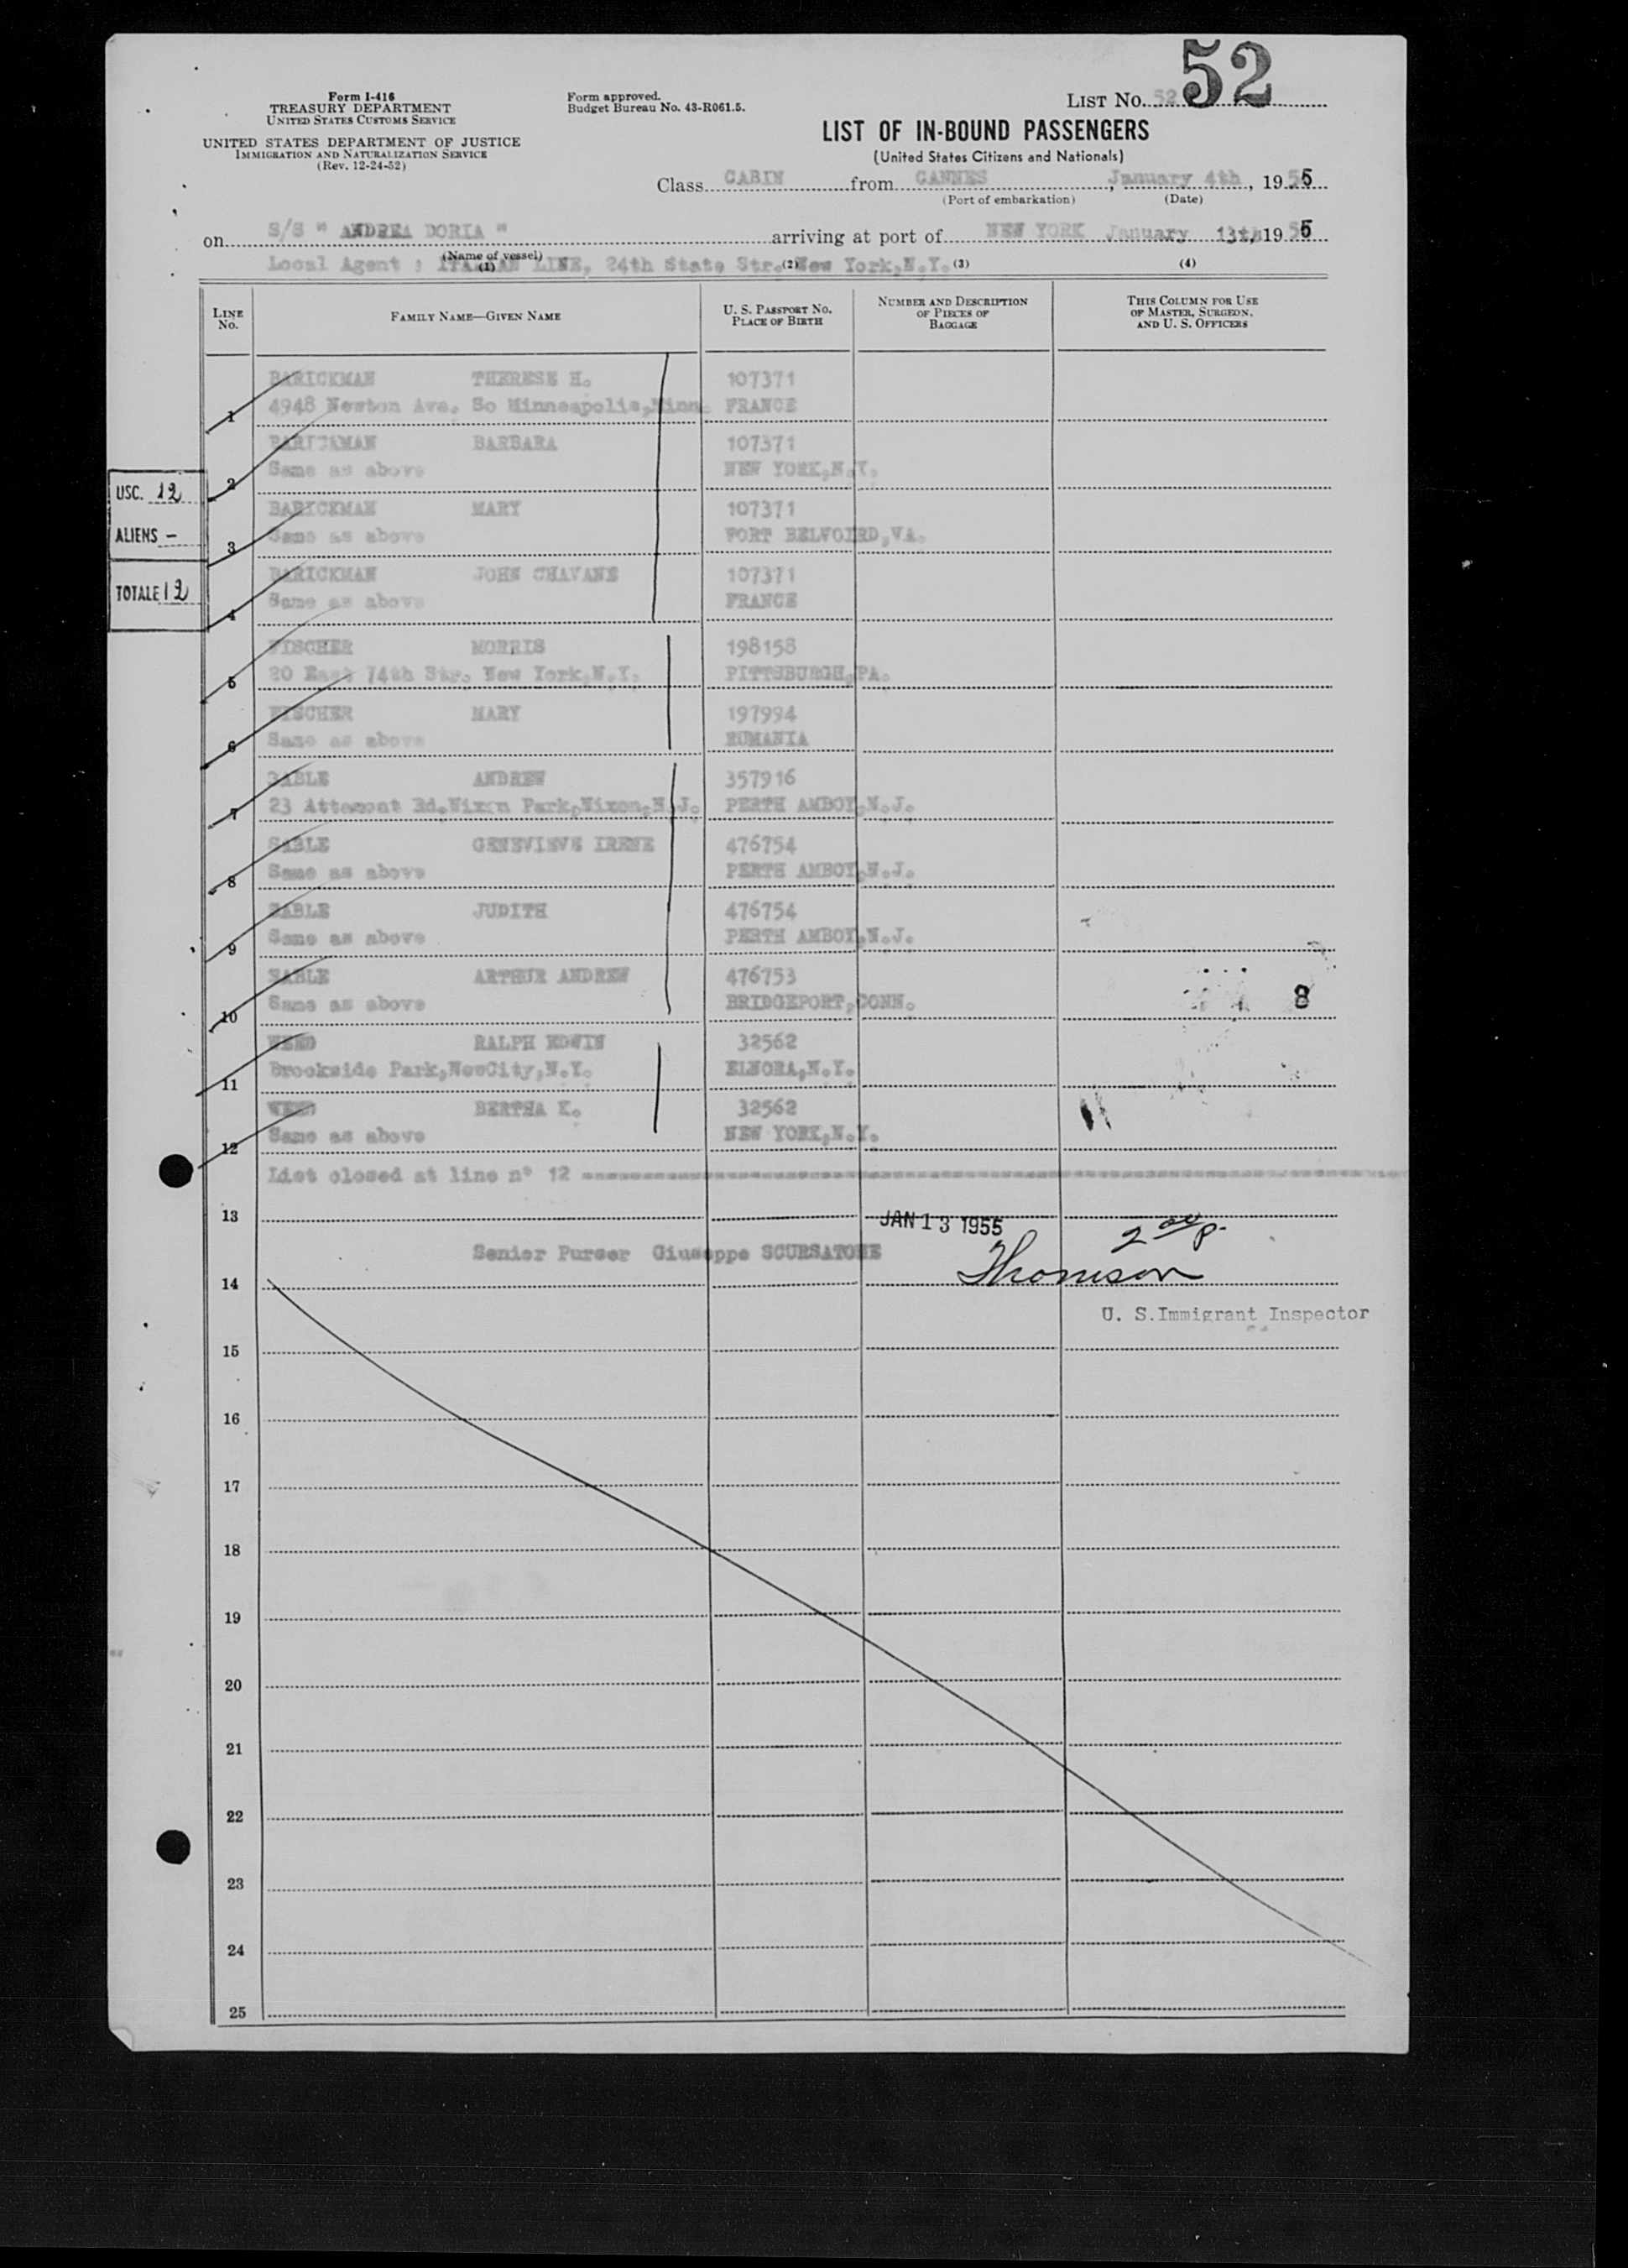 52
Form I-416
TREASURY DEPARTMENT
UNITED STATES CUSTOMS SERVICE
UNITED STATES DEPARTMENT OF JUSTICE
IMMIGRATION AND NATURALIZATION SERVICE
(Rev. 12-24-52)
Form approved.
Budget Bureau No. 43-R061.5.
LIST NO. 52
LIST OF IN-BOUND PASSENGERS
(United States Citizens and Nationals)
Class CABIN from CANNES, January 4th, 1955
(Port of embarkation) (Date)
on S/S " ANDREA DORIA " arriving at port of NEW YORK January 13th 1955
(Name of vessel)
Local Agent : ITALIAN LINE, 24th State Str. New York, N.Y.
(1) (2) (3) (4)
LINE NO. FAMILY NAME—GIVEN NAME U. S. PASSPORT NO. PLACE OF BIRTH NUMBER AND DESCRIPTION OF PIECES OF BAGGAGE THIS COLUMN FOR USE OF MASTER, SURGEON, AND U. S. OFFICERS
BARICKMAN THERESE H. 107371
1 4948 Newton Ave. So Minneapolis, Minn. FRANCE
BARICKMAN BARBARA 107371
2 Same as above NEW YORK, N.Y.
USC. 12
BARICKMAN MARY 107371
ALIENS -
3 Same as above FORT BELVOIRD, VA.
BARICKMAN JOHN CHAVANE 107371
TOTALE 12
4 Same as above FRANCE
FISCHER MORRIS 198158
5 20 East 74th Str. New York, N.Y. PITTSBURGH, PA.
FISCHER MARY 197994
6 Same as above RUMANIA
SABLE ANDREW 357916
7 23 Rd. Nixon Park, Nixon, N.J. PERTH AMBOY, N.J.
SABLE GENEVIEVE IRENE 476754
8 Same as above PERTH AMBOY, N.J.
SABLE JUDITH 476754
9 Same as above PERTH AMBOY, N.J.
SABLE ARTHUR ANDREW 476753
10 Same as above BRIDGEPORT, CONN. 8
WEED RALPH EDWIN 32562
11 Brookside Park, NewCity, N.Y. ELNORA, N.Y.
WEED BERTHA K. 32562
12 Same as above NEW YORK, N.Y.
List closed at line n° 12
13
JAN 13 1955
Senior Purser Giuseppe SCURSATONE
14 Thomson
U. S. Immigrant Inspector
15
16
17
18
19
20
21
22
23
24
25